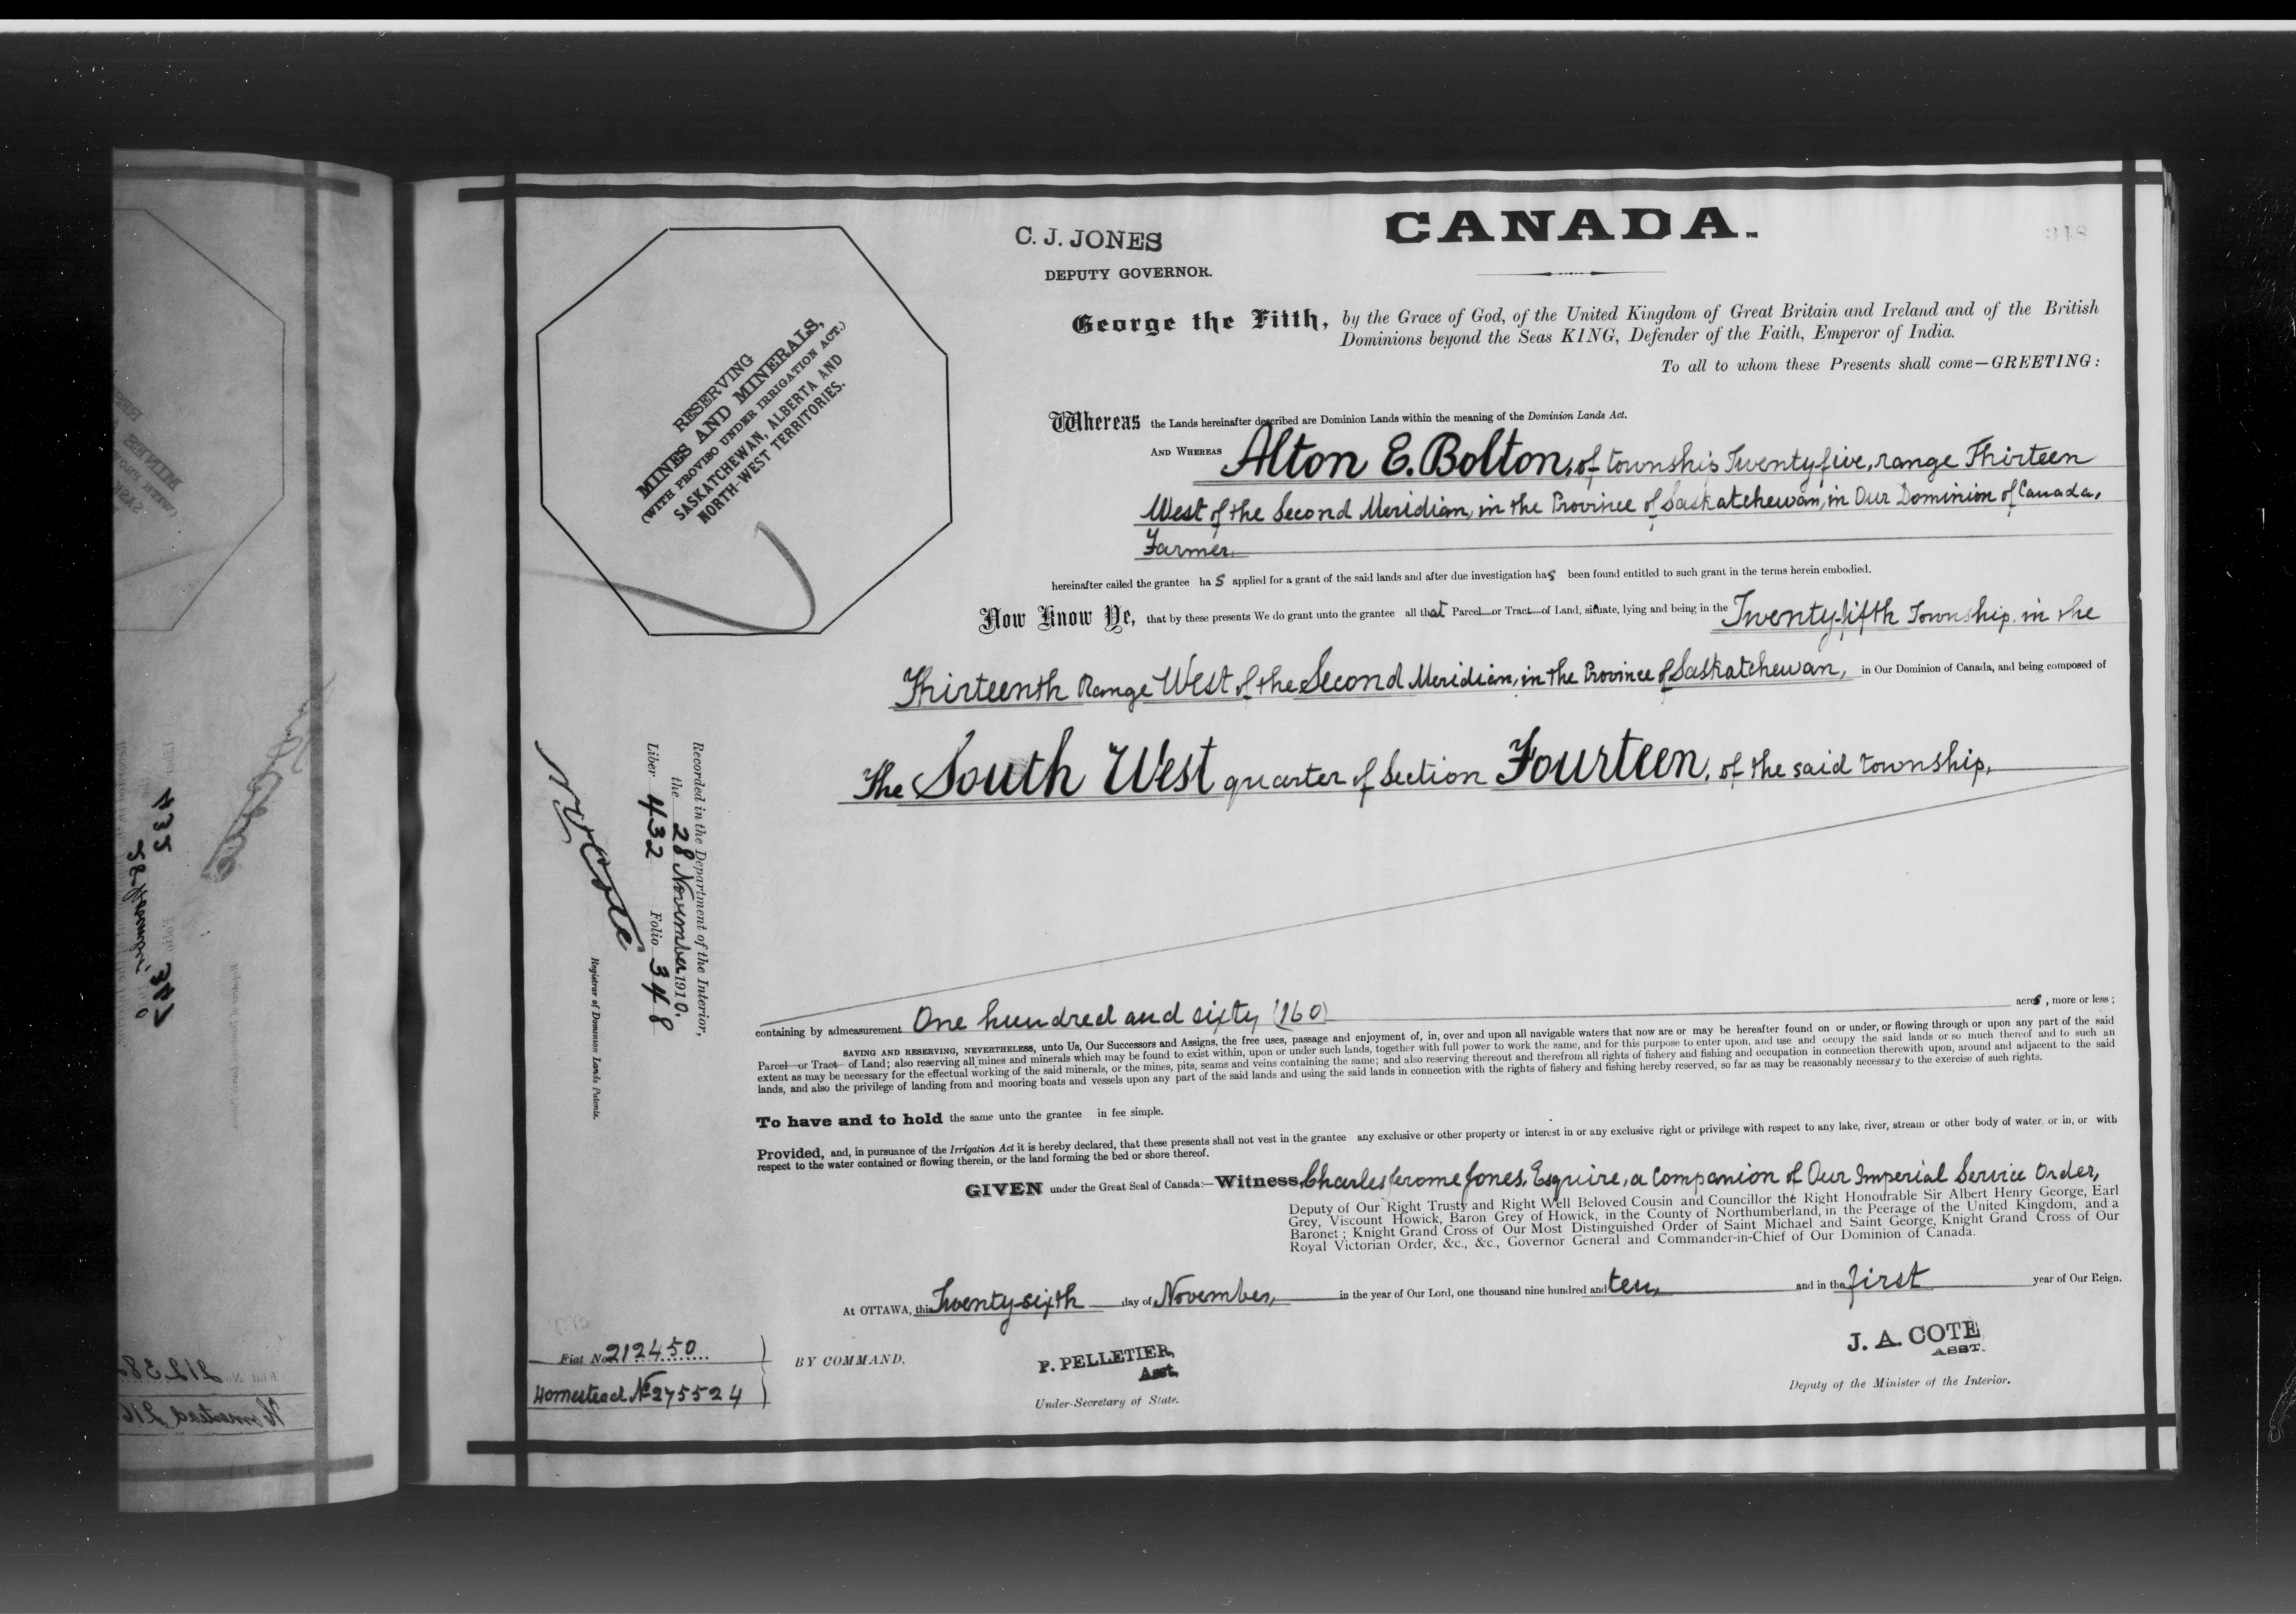 CANADA.
348
C. J. JONES
DEPUTY GOVERNOR.
George the Fifth, by the Grace of God, of the United Kingdom of Great Britain and Ireland and of the British
Dominions beyond the Seas KING, Defender of the Faith, Emperor of India.
To all to whom these Presents shall come—GREETING:
RESERVING
MINES AND MINERALS,
(WITH PROVISO UNDER IRRIGATION ACT.)
SASKATCHEWAN, ALBERTA AND
NORTH-WEST TERRITORIES.
Whereas the Lands hereinafter described are Dominion Lands within the meaning of the Dominion Lands Act.
AND WHEREAS Alton E. Bolton, of township Twenty five, range Thirteen
West of the Second Meridian, in the Province of Saskatchewan, in Our Dominion of Canada,
Farmer.
hereinafter called the grantee has applied for a grant of the said lands and after due investigation has been found entitled to such grant in the terms herein embodied.
Now Know Ye, that by these presents We do grant unto the grantee all that Parcel or Tract of Land, situate, lying and being in the Twenty-fifth Township in the
Thirteenth Range West of the Second Meridian, in the Province of Saskatchewan, in Our Dominion of Canada, and being composed of
The South West quarter of Section Fourteen, of the said township,
Recorded in the Department of the Interior,
the 28 November 1910,
Liber 432 Folio 348
N O Cote
Registrar of Dominion Lands Patents.
containing by admeasurement One hundred and sixty (160) acres, more or less;
SAVING AND RESERVING, NEVERTHELESS, unto Us, Our Successors and Assigns, the free uses, passage and enjoyment of, in, over and upon all navigable waters that now are or may be hereafter found on or under, or flowing through or upon any part of the said
Parcel or Tract of Land; also reserving all mines and minerals which may be found to exist within, upon or under such lands, together with full power to work the same, and for this purpose to enter upon, and use and occupy the said lands or so much thereof and to such an
extent as may be necessary for the effectual working of the said minerals, or the mines, pits, seams and veins containing the same; and also reserving thereout and therefrom all rights of fishery and fishing and occupation in connection therewith upon, around and adjacent to the said
lands, and also the privilege of landing from and mooring boats and vessels upon any part of the said lands and using the said lands in connection with the rights of fishery and fishing hereby reserved, so far as may be reasonably necessary to the exercise of such rights.
To have and to hold the same unto the grantee in fee simple.
Provided, and, in pursuance of the Irrigation Act it is hereby declared, that these presents shall not vest in the grantee any exclusive or other property or interest in or any exclusive right or privilege with respect to any lake, river, stream or other body of water, or in, or with
respect to the water contained or flowing therein, or the land forming the bed or shore thereof.
GIVEN under the Great Seal of Canada:—Witness, Charles Jerome Jones, Esquire, a Companion of Our Imperial Service Order,
Deputy of Our Right Trusty and Right Well Beloved Cousin and Councillor the Right Honourable Sir Albert Henry George, Earl
Grey, Viscount Howick, Baron Grey of Howick, in the County of Northumberland, in the Peerage of the United Kingdom, and a
Baronet; Knight Grand Cross of Our Most Distinguished Order of Saint Michael and Saint George, Knight Grand Cross of Our
Royal Victorian Order, &c., &c., Governor General and Commander-in-Chief of Our Dominion of Canada.
At OTTAWA, this Twenty-sixth day of November, in the year of Our Lord, one thousand nine hundred and ten, and in the first year of Our Reign.
Fiat No. 212450
Homestead No 275524
BY COMMAND,
P. PELLETIER,
Asst.
Under-Secretary of State.
J. A. COTE
ASST.
Deputy of the Minister of the Interior.